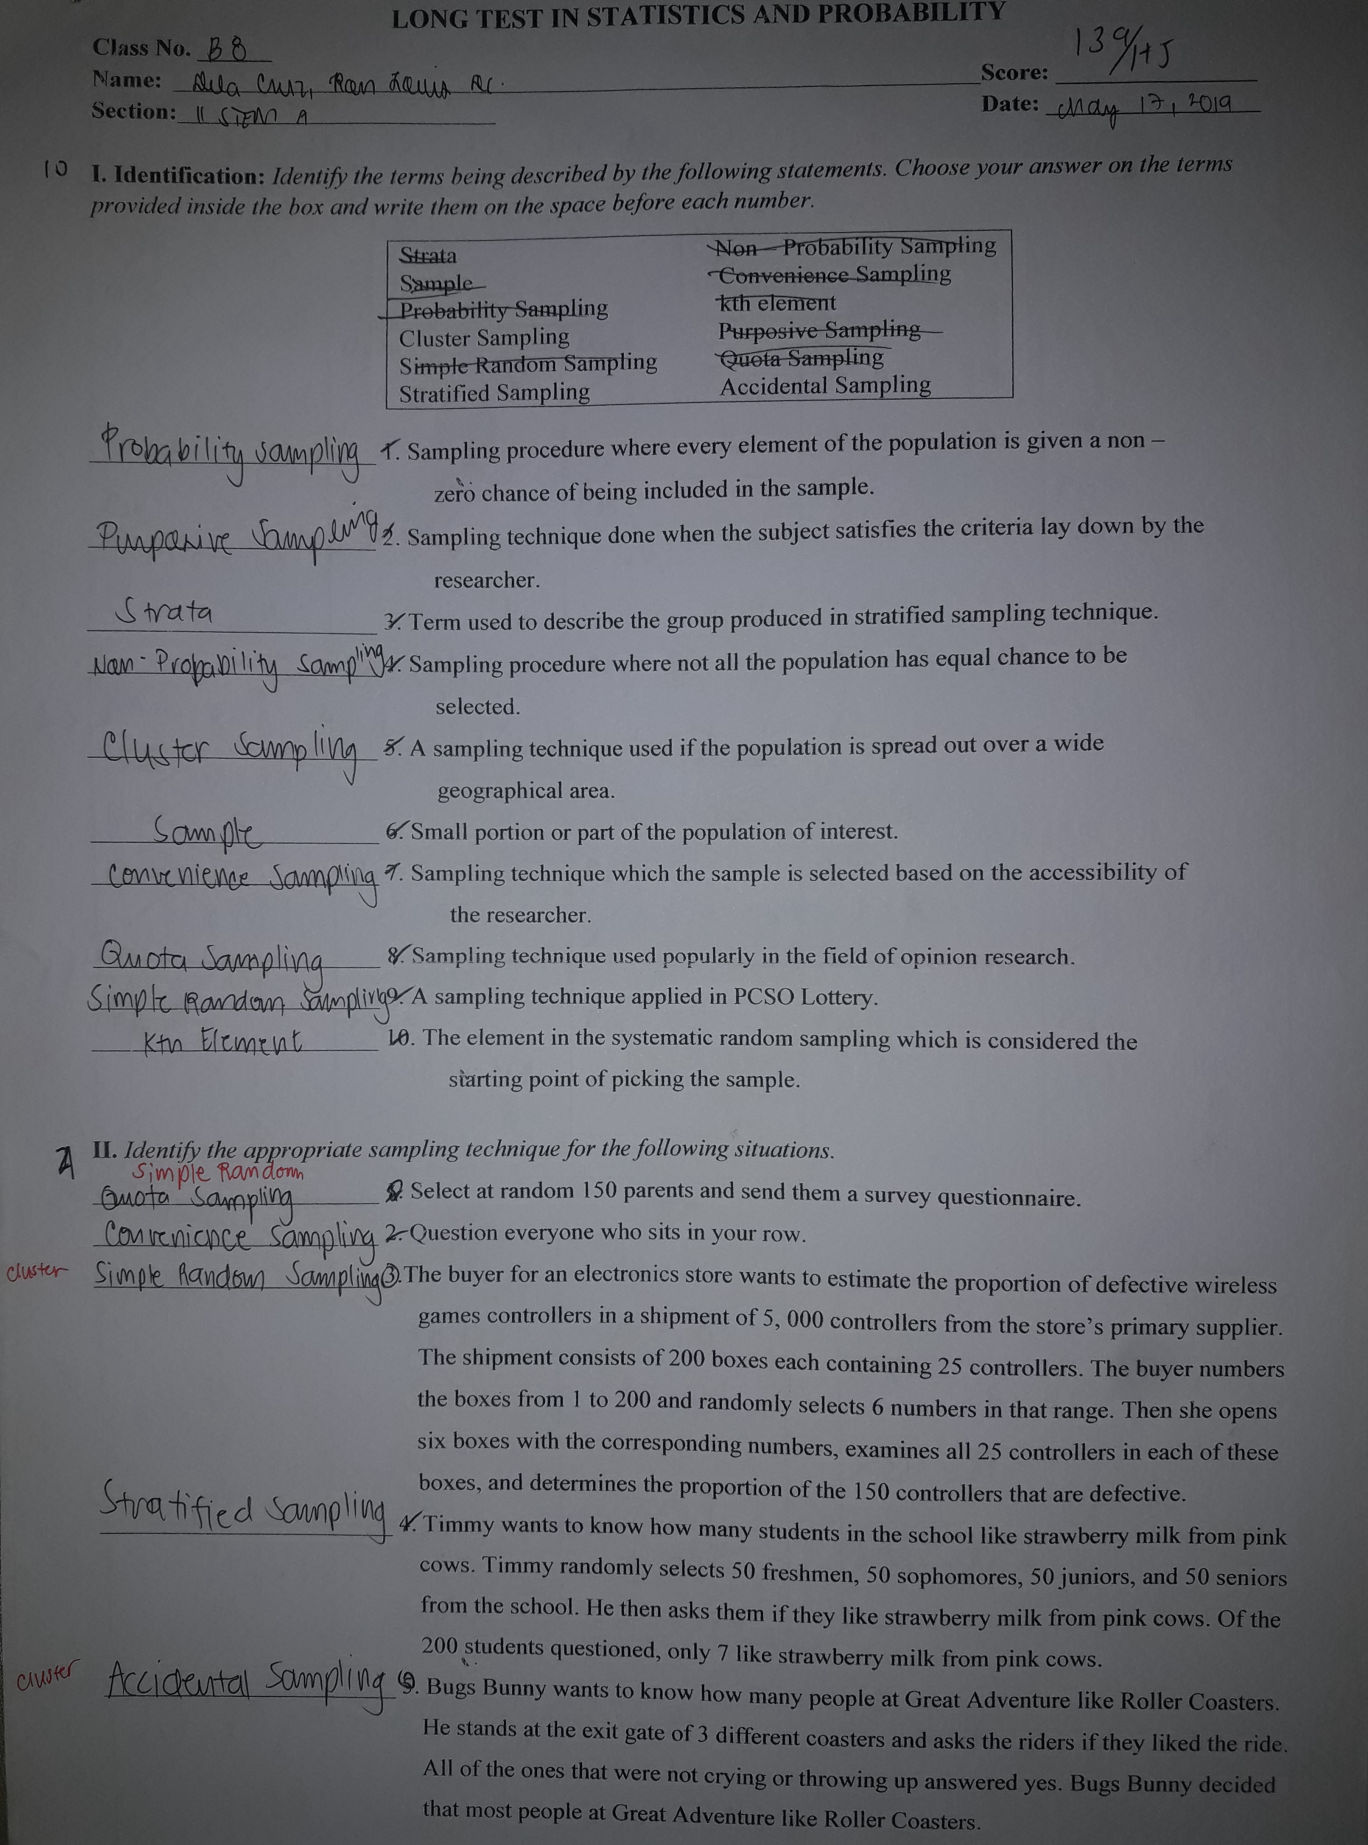 LONG TEST IN STATISTICS AND PROBABILITY
Class No. B8
Name: Dela Cruz, Ran Louis
Score: 139/1+5
Section: 11 STEM A
Date: May 17, 2019
10 I. Identification: Identify the terms being described by the following statements. Choose your answer on the terms
provided inside the box and write them on the space before each number.
Strata
Sample
Probability Sampling
Cluster Sampling
Simple Random Sampling
Stratified Sampling
Non – Probability Sampling
Convenience Sampling
kth element
Purposive Sampling
Quota Sampling
Accidental Sampling
Probability Sampling 1. Sampling procedure where every element of the population is given a non –
zero chance of being included in the sample.
Purposive Sampling 2. Sampling technique done when the subject satisfies the criteria lay down by the
researcher.
Strata 3. Term used to describe the group produced in stratified sampling technique.
Non-Probability Sampling 4. Sampling procedure where not all the population has equal chance to be
selected.
Cluster Sampling 5. A sampling technique used if the population is spread out over a wide
geographical area.
Sample 6. Small portion or part of the population of interest.
Convenience Sampling 7. Sampling technique which the sample is selected based on the accessibility of
the researcher.
Quota Sampling 8. Sampling technique used popularly in the field of opinion research.
Simple Random Sampling 9. A sampling technique applied in PCSO Lottery.
Kth Element 10. The element in the systematic random sampling which is considered the
starting point of picking the sample.
II. Identify the appropriate sampling technique for the following situations.
Simple Random
Quota Sampling 1. Select at random 150 parents and send them a survey questionnaire.
Convenience Sampling 2. Question everyone who sits in your row.
cluster Simple Random Sampling 3. The buyer for an electronics store wants to estimate the proportion of defective wireless
games controllers in a shipment of 5, 000 controllers from the store's primary supplier.
The shipment consists of 200 boxes each containing 25 controllers. The buyer numbers
the boxes from 1 to 200 and randomly selects 6 numbers in that range. Then she opens
six boxes with the corresponding numbers, examines all 25 controllers in each of these
boxes, and determines the proportion of the 150 controllers that are defective.
Stratified Sampling 4. Timmy wants to know how many students in the school like strawberry milk from pink
cows. Timmy randomly selects 50 freshmen, 50 sophomores, 50 juniors, and 50 seniors
from the school. He then asks them if they like strawberry milk from pink cows. Of the
200 students questioned, only 7 like strawberry milk from pink cows.
cluster Accidental Sampling 5. Bugs Bunny wants to know how many people at Great Adventure like Roller Coasters.
He stands at the exit gate of 3 different coasters and asks the riders if they liked the ride.
All of the ones that were not crying or throwing up answered yes. Bugs Bunny decided
that most people at Great Adventure like Roller Coasters.